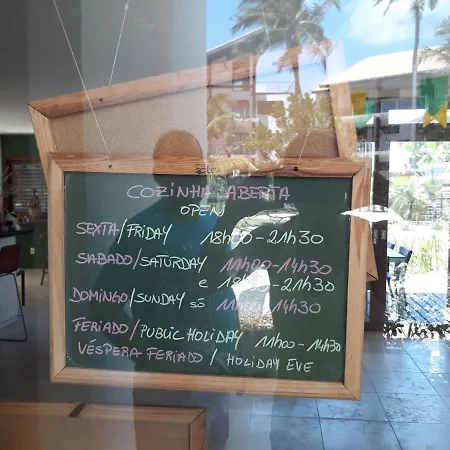 COZINHA ABERTA
OPEN
SEXTA/FRIDAY 18h00-21h30
SABADO/SATURDAY 11h00-14h30
e 18h00-21h30
DOMINGO/SUNDAY só 11h00-14h30
FERIADO/PUBLIC HOLIDAY 11h00-14h30
VÉSPERA FERIADO / HOLIDAY EVE